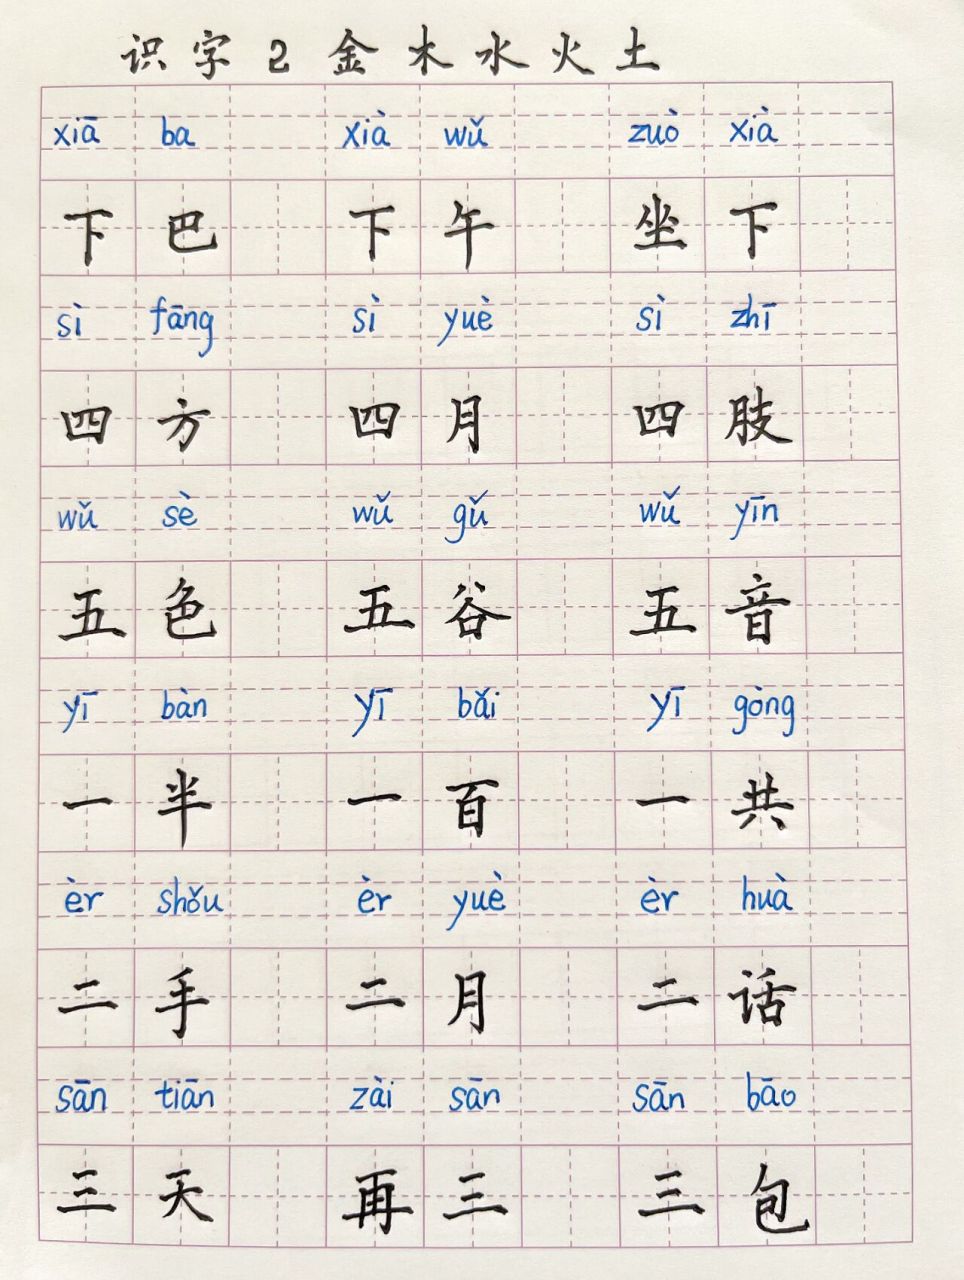 识字2金木水火土
xiā ba xià wǔ zuò xià
下巴 下午 坐下
sì fāng sì yuè sì zhī
四方 四月 四肢
wǔ sè wǔ gǔ wǔ yīn
五色 五谷 五音
yī bàn yī bǎi yī gòng
一半 一百 一共
èr shǒu èr yuè èr huà
二手 二月 二话
sān tiān zài sān sān bāo
三天 再三 三包